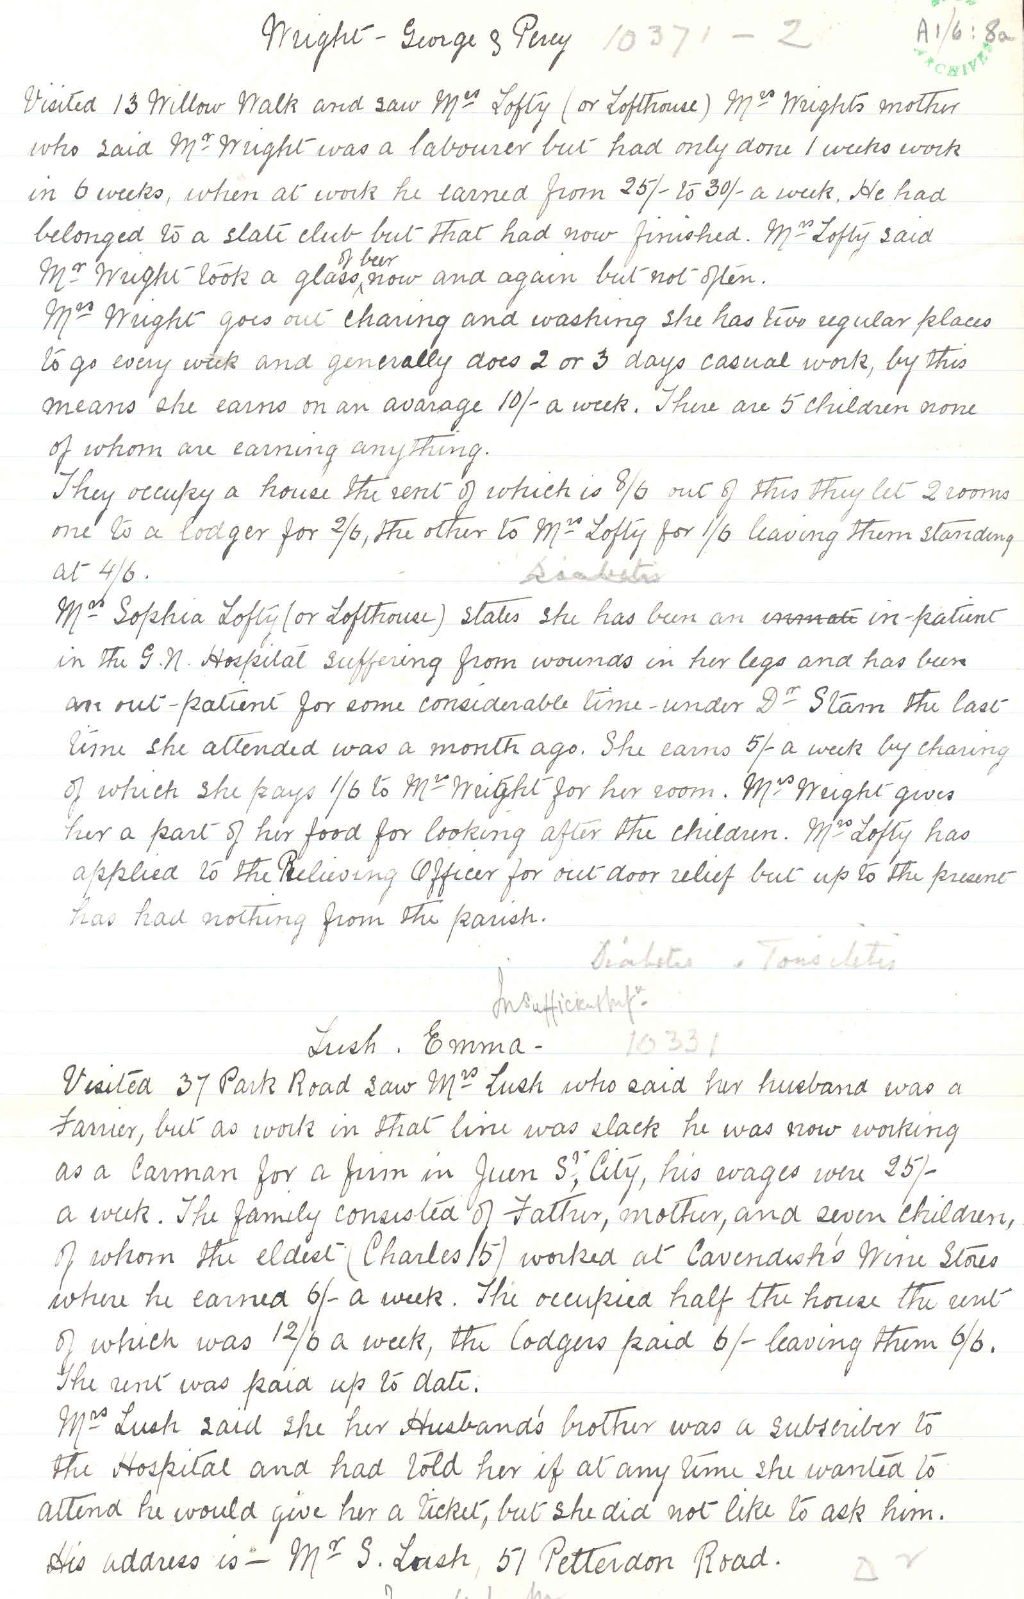 Wright - George & Percy 10371 - 2
A1/6: 8a
ARCHIVES
Visited 13 Willow Walk and saw Mrs Lofty (or Lofthouse) Mrs Wrights mother
who said Mr Wright was a labourer but had only done 1 weeks work
in 6 weeks, when at work he earned from 25/- to 30/- a week. He had
belonged to a slate club but that had now finished. Mrs Lofty said
Mr Wright took a glass of beer now and again but not often.
Mrs Wright goes out charing and washing she has two regular places
to go every week and generally does 2 or 3 days casual work, by this
means she earns on an avarage 10/- a week. There are 5 children none
of whom are earning anything.
They occupy a house the rent of which is 8/6 out of this they let 2 rooms
one to a lodger for 2/6, the other to Mrs Lofty for 1/6 leaving them standing
at 4/6.
Diabetis
Mrs Sophia Lofty (or Lofthouse) states she has been an inmate in-patient
in the G.N. Hospital suffering from wounds in her legs and has been
an out-patient for some considerable time - under Dr Stam the last
time she attended was a month ago. She earns 5/- a week by charing
of which she pays 1/6 to Mrs Wright for her room. Mrs Wright gives
her a part of her food for looking after the children. Mrs Lofty has
applied to the Relieving Officer for out door relief but up to the present
has had nothing from the parish.
Diabetis . Tonsiletis
Insufficient Infn.
Lush . Emma - 10331
Visited 37 Park Road saw Mrs Lush who said her husband was a
Farrier, but as work in that line was slack he was now working
as a Carman for a firm in Juen St, City, his wages were 25/-
a week. The family consisted of Father, mother, and seven children,
of whom the eldest (Charles 15) worked at Cavendish's Wine Stores
where he earned 6/- a week. The occupied half the house the rent
of which was 12/6 a week, the lodgers paid 6/- leaving them 6/6.
The rent was paid up to date.
Mrs Lush said she her Husband's brother was a subscriber to
the Hospital and had told her if at any time she wanted to
attend he would give her a ticket, but she did not like to ask him.
His address is - Mr S. Lush, 51 Petterdon Road.